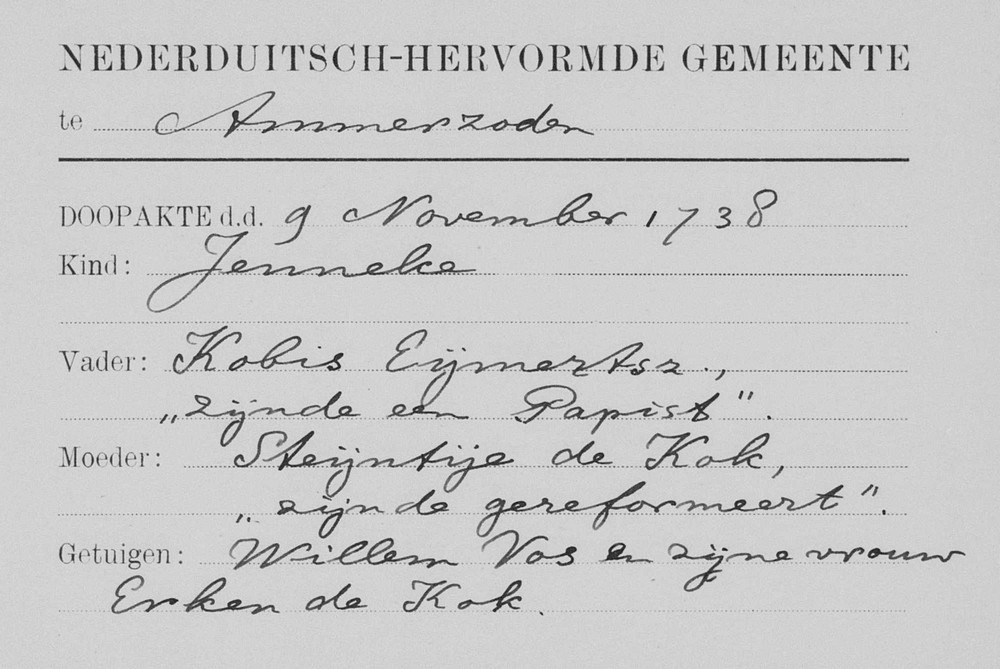 NEDERDUITSCH-HERVORMDE GEMEENTE
te Ammerzoden
DOOPAKTE d.d. 9 November 1738
Kind: Jenneke
Vader: Kobis Eijmertsz.,
„zijnde een Papist".
Moeder: Steijntije de Kok,
„zijnde gereformeert".
Getuigen: Willem Vos en zijne vrouw
Erken de Kok.